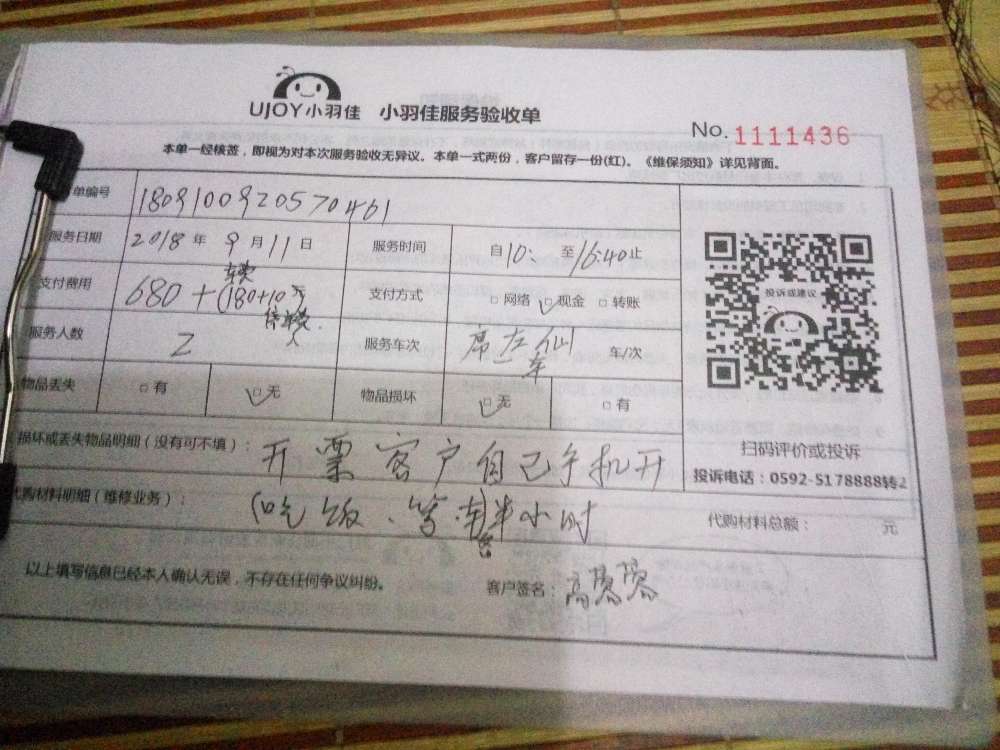 UJOY小羽佳 小羽佳服务验收单
No.1111436
本单一经核签，即视为对本次服务验收无异议。本单一式两份，客户留存一份(红)。《维保须知》详见背面。
单编号 1809100920570461
服务日期 2018年9月11日 服务时间 自10: 至16:40止
支付费用 680+(180+10元 车费 停车费 支付方式 □网络 □现金 □转账
服务人数 2 服务车次 车/次
物品丢失 □有 □无 物品损坏 □无 □有
投诉或建议
扫码评价或投诉
投诉电话：0592-5178888转2
损坏或丢失物品明细（没有可不填）： 开票客户自己手机开
代购材料明细（维修业务）： (吃饭、等 半小时
代购材料总额： 元
以上填写信息已经本人确认无误，不存在任何争议纠纷。 客户签名：高